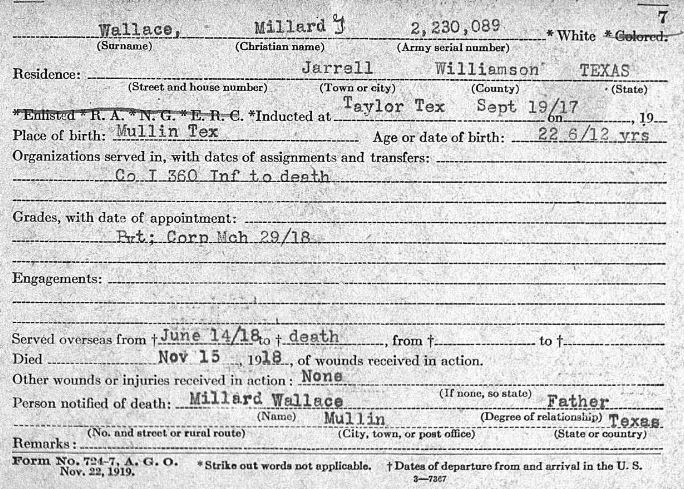 7
Wallace, Millard J 2,230,089 *White *Colored.
(Surname) (Christian name) (Army serial number)
Residence: Jarrell Williamson TEXAS
(Street and house number) (Town or city) (County) (State)
*Enlisted *R. A. *N. G. *E. R. C. *Inducted at Taylor Tex on Sept 19/17, 19
Place of birth: Mullin Tex Age or date of birth: 22 6/12 yrs
Organizations served in, with dates of assignments and transfers:
Co I 360 Inf to death
Grades, with date of appointment:
Pvt; Corp Mch 29/18
Engagements:
Served overseas from † June 14/18 to † death, from † to †
Died Nov 15, 1918, of wounds received in action.
Other wounds or injuries received in action: None
(If none, so state)
Person notified of death: Millard Wallace Father
(Name) (Degree of relationship)
Mullin Texas
(No. and street or rural route) (City, town, or post office) (State or country)
Remarks:
Form No. 724-7, A. G. O. *Strike out words not applicable. †Dates of departure from and arrival in the U. S.
Nov. 22, 1919. 3—7367